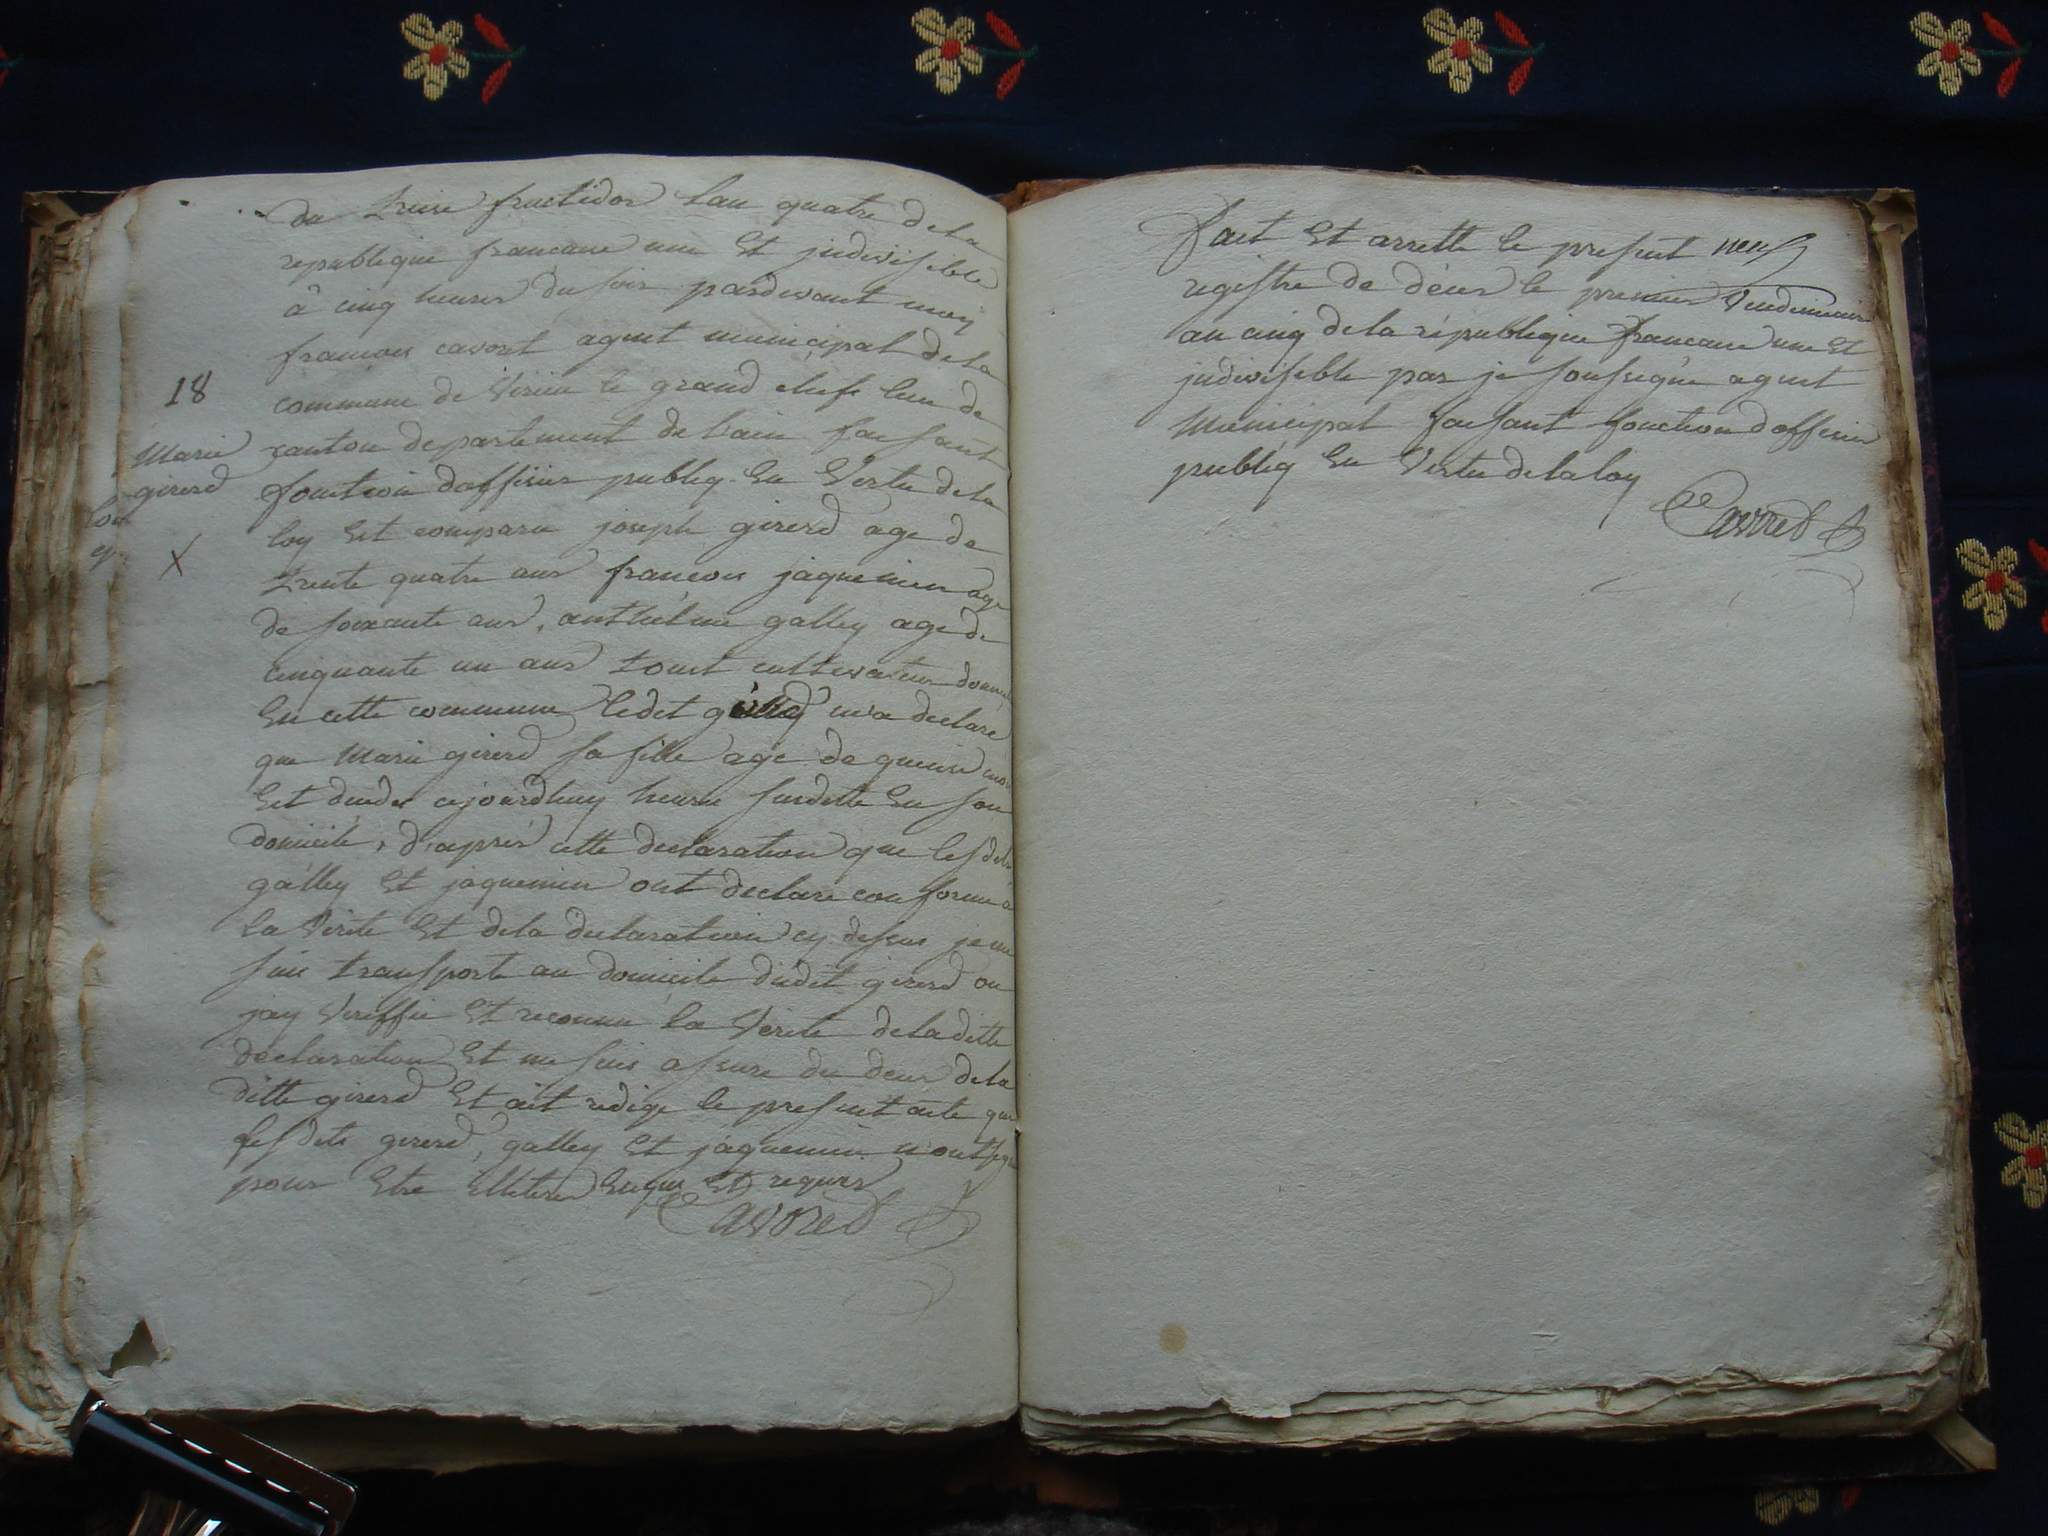 du treise fructidor lan quatre dela
republeque francaise une Et judivisible
à cinq heures du soir pardevant moy
francois cavoret agent municipal dela
18
commune de Virieu le grand chefe lieu de
Marie
girerd
canton departement de l'ain faisant
fonction dofficier publiq En Vertu dela
loy Est comparu joseph girerd age de
X
trente quatre ans francois jaquemier age
de soixante ans, anthelme galley age de
cinquante un ans tout cultivateur
En cette commune ledit girerd m'a declaré
que Marie girerd sa fille age de quinse mois
Est ce jourdhuy heure susditte En son
domicile, d'après cette declaration que lesdits
galley Et jaquemier ont declare conforme a
la Verite Et dela declaration cy dessus je me
suis transporte au domicile dudit girerd ou
jay Veriffie Et reconnu la Verite dela ditte
declaration Et me suis assure du deces dela
ditte girerd Et ait redige le present acte que
lesdits girerd, galley Et jaquemier n'ont signe
pour Etre illiteres Enquis Et requis
Cavored
fait Et arrette le present
registre de déces le premier Vendemiaire
an cinq dela république francaise une Et
judivisible par je soussigne agent
Municipal faisant fonction dofficier
publiq En Vertu dela loy
Cavored